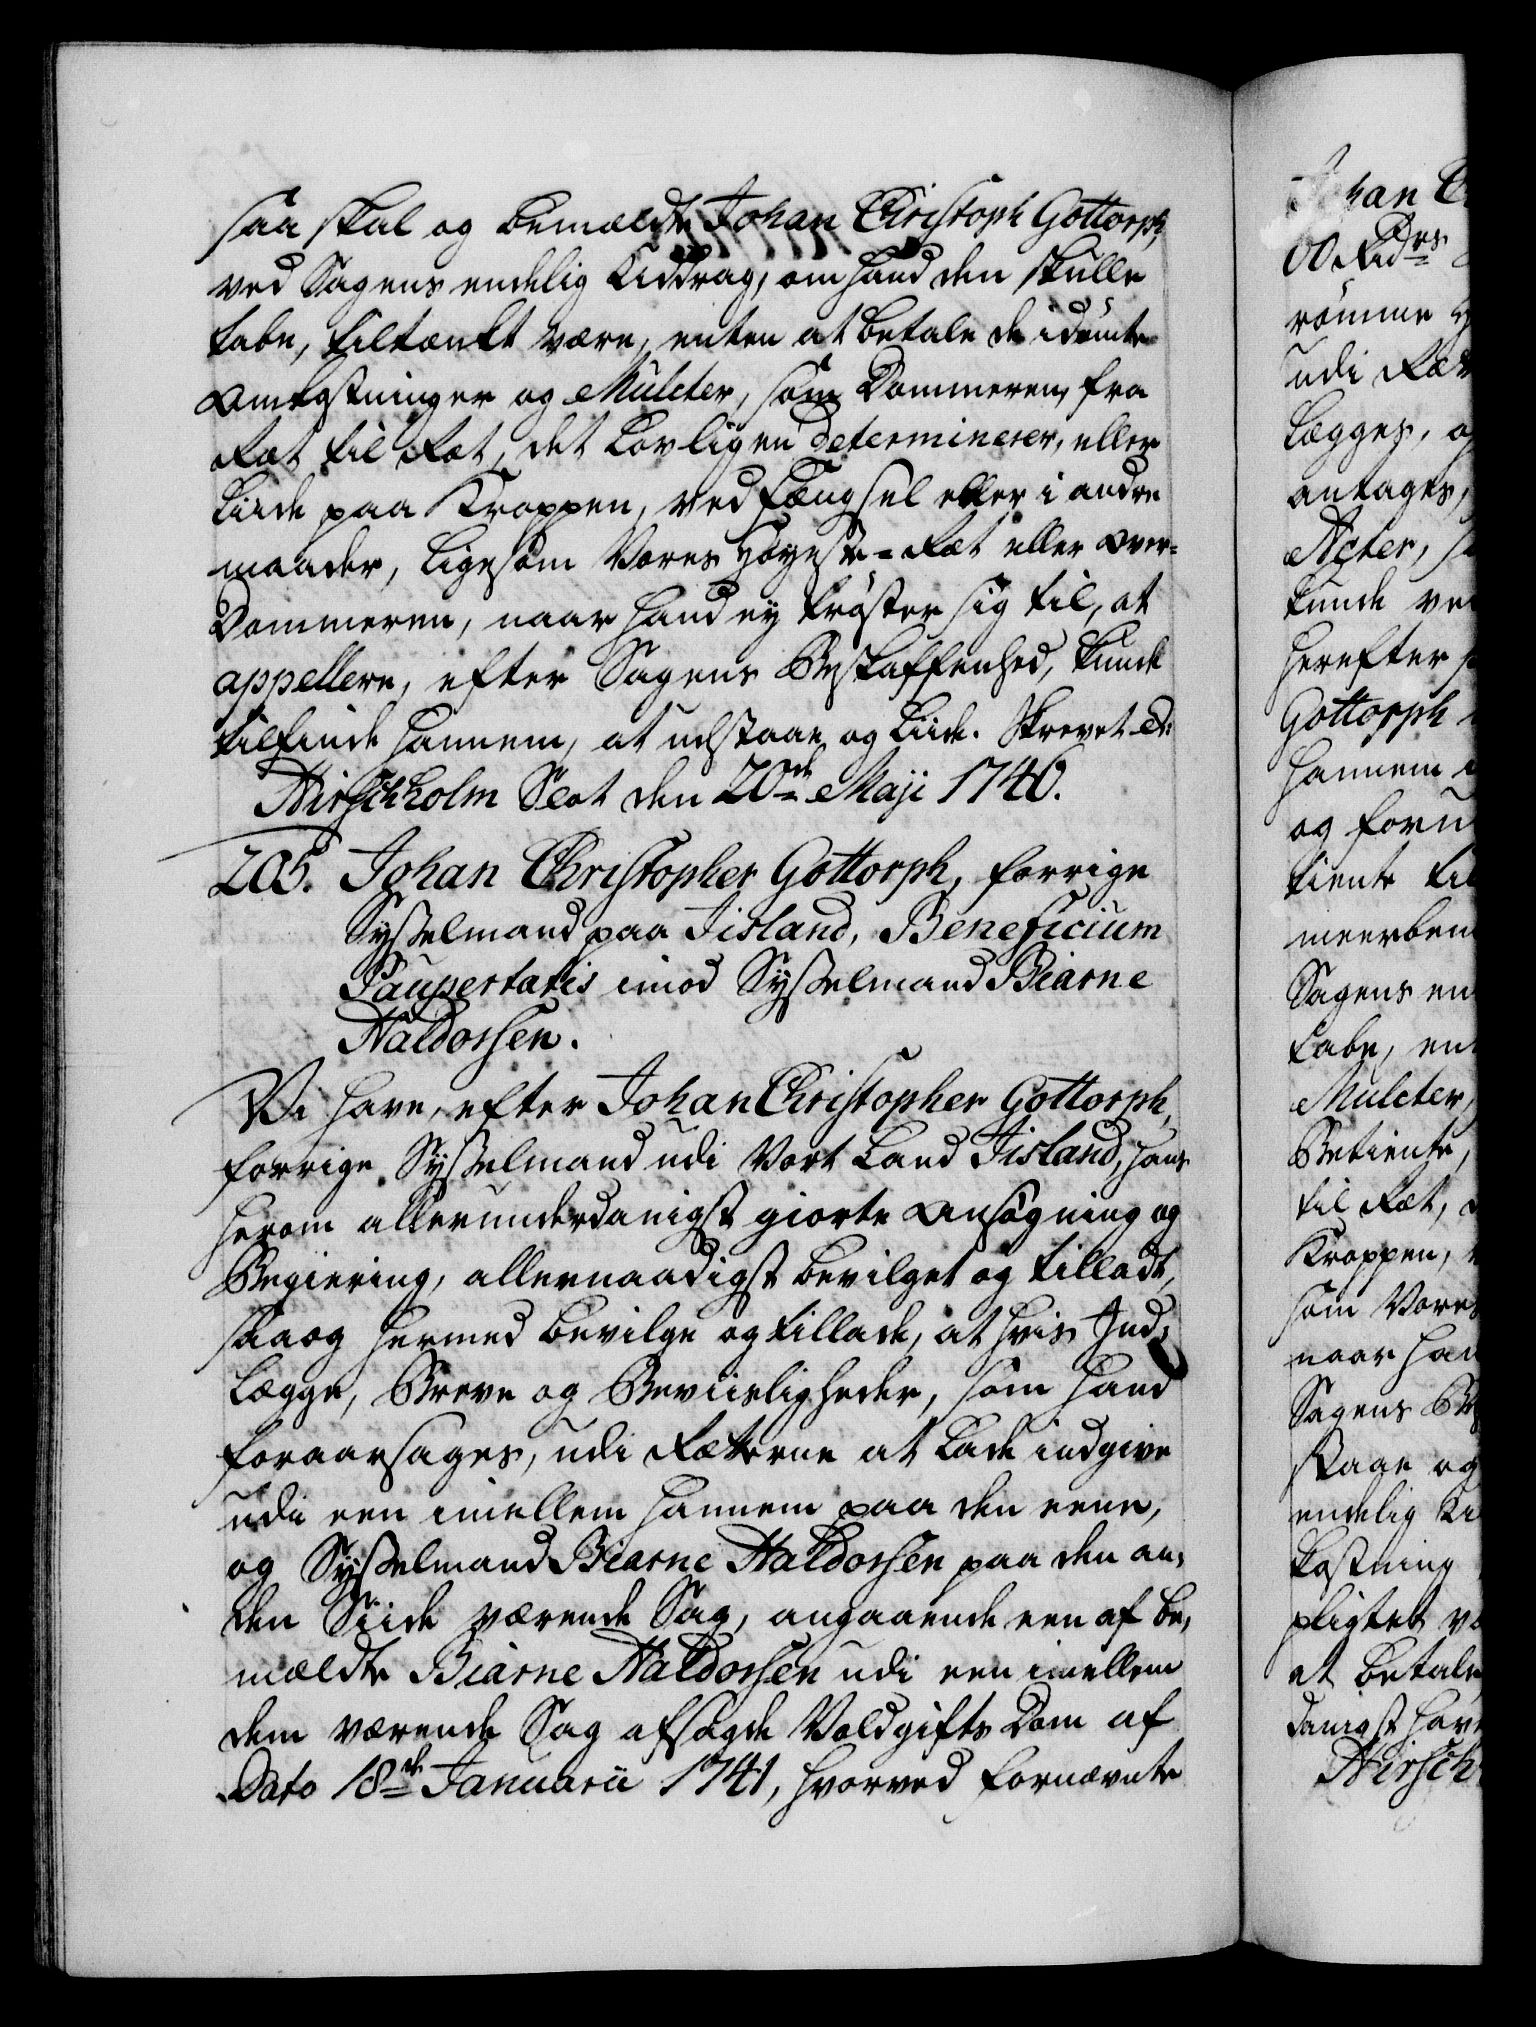 saa skal og bemældte Johan Christoph Gottorph,
ved Sagens endelig Uddrag, om hand den skulle
tabe, tiltænkt være, enten at betale de idømte
Omkostninger og Mulcter, som Dommeren, fra
Ræt til Ræt, det Lovligen determinerer, eller
Liide paa Kroppen, ved Fængsel eller i andre
maader, ligesom Vores Høyeste-Ræt eller Over-
Dommeren, naar hand ey trøster sig til, at
appellere, efter Sagens Beskaffenhed, kunde
tilfinde hannem, at udstaae og Liide. Skrevet &:
Hirschholm Slot den 20de Maji 1746.
205. Johan Christopher Gottorph, forrige
Sysselmand paa Iisland, Beneficium
Paupertatis imod Sysselmand Biarne
Haldorssen.
Vi have, efter Johan Christopher Gottorph,
forrige Sysselmand udi Vort Land Iisland, hans
herom allerunderdanigst giorte Ansøgning og
Begiering, allernaadigst bevilget og tilladt,
saa og hermed bevilge og tillade, at hvis Ind-
Lægge, Breve og Beviisligheder, som hand
foraarsages, udi Rætterne at Lade indgive
udi een imellem hannem paa den eene,
og Sysselmand Biarne Haldorssen paa den an-
den Siide værende Sag, angaaende een af be-
mældte Biarne Haldorssen udi een imellem
dem værende Sag afsagde Voldgifts Dom af
Dato 18de Januarii 1741, hvorved fornævnte
Johan
00 Rdrs
rømme
udi Ræt
Lægges, og
antages,
Acter,
kunde
herefter
Gottorph
hannem
og
tiente til
meerbem
Sagens en
tabe, en
Mulcter,
Betiente,
til Ræt,
Kroppen,
som Vores
naar han
Sagens
staae og
endelig
kostning
pligtet
at betale
danigst hav
Hirsch